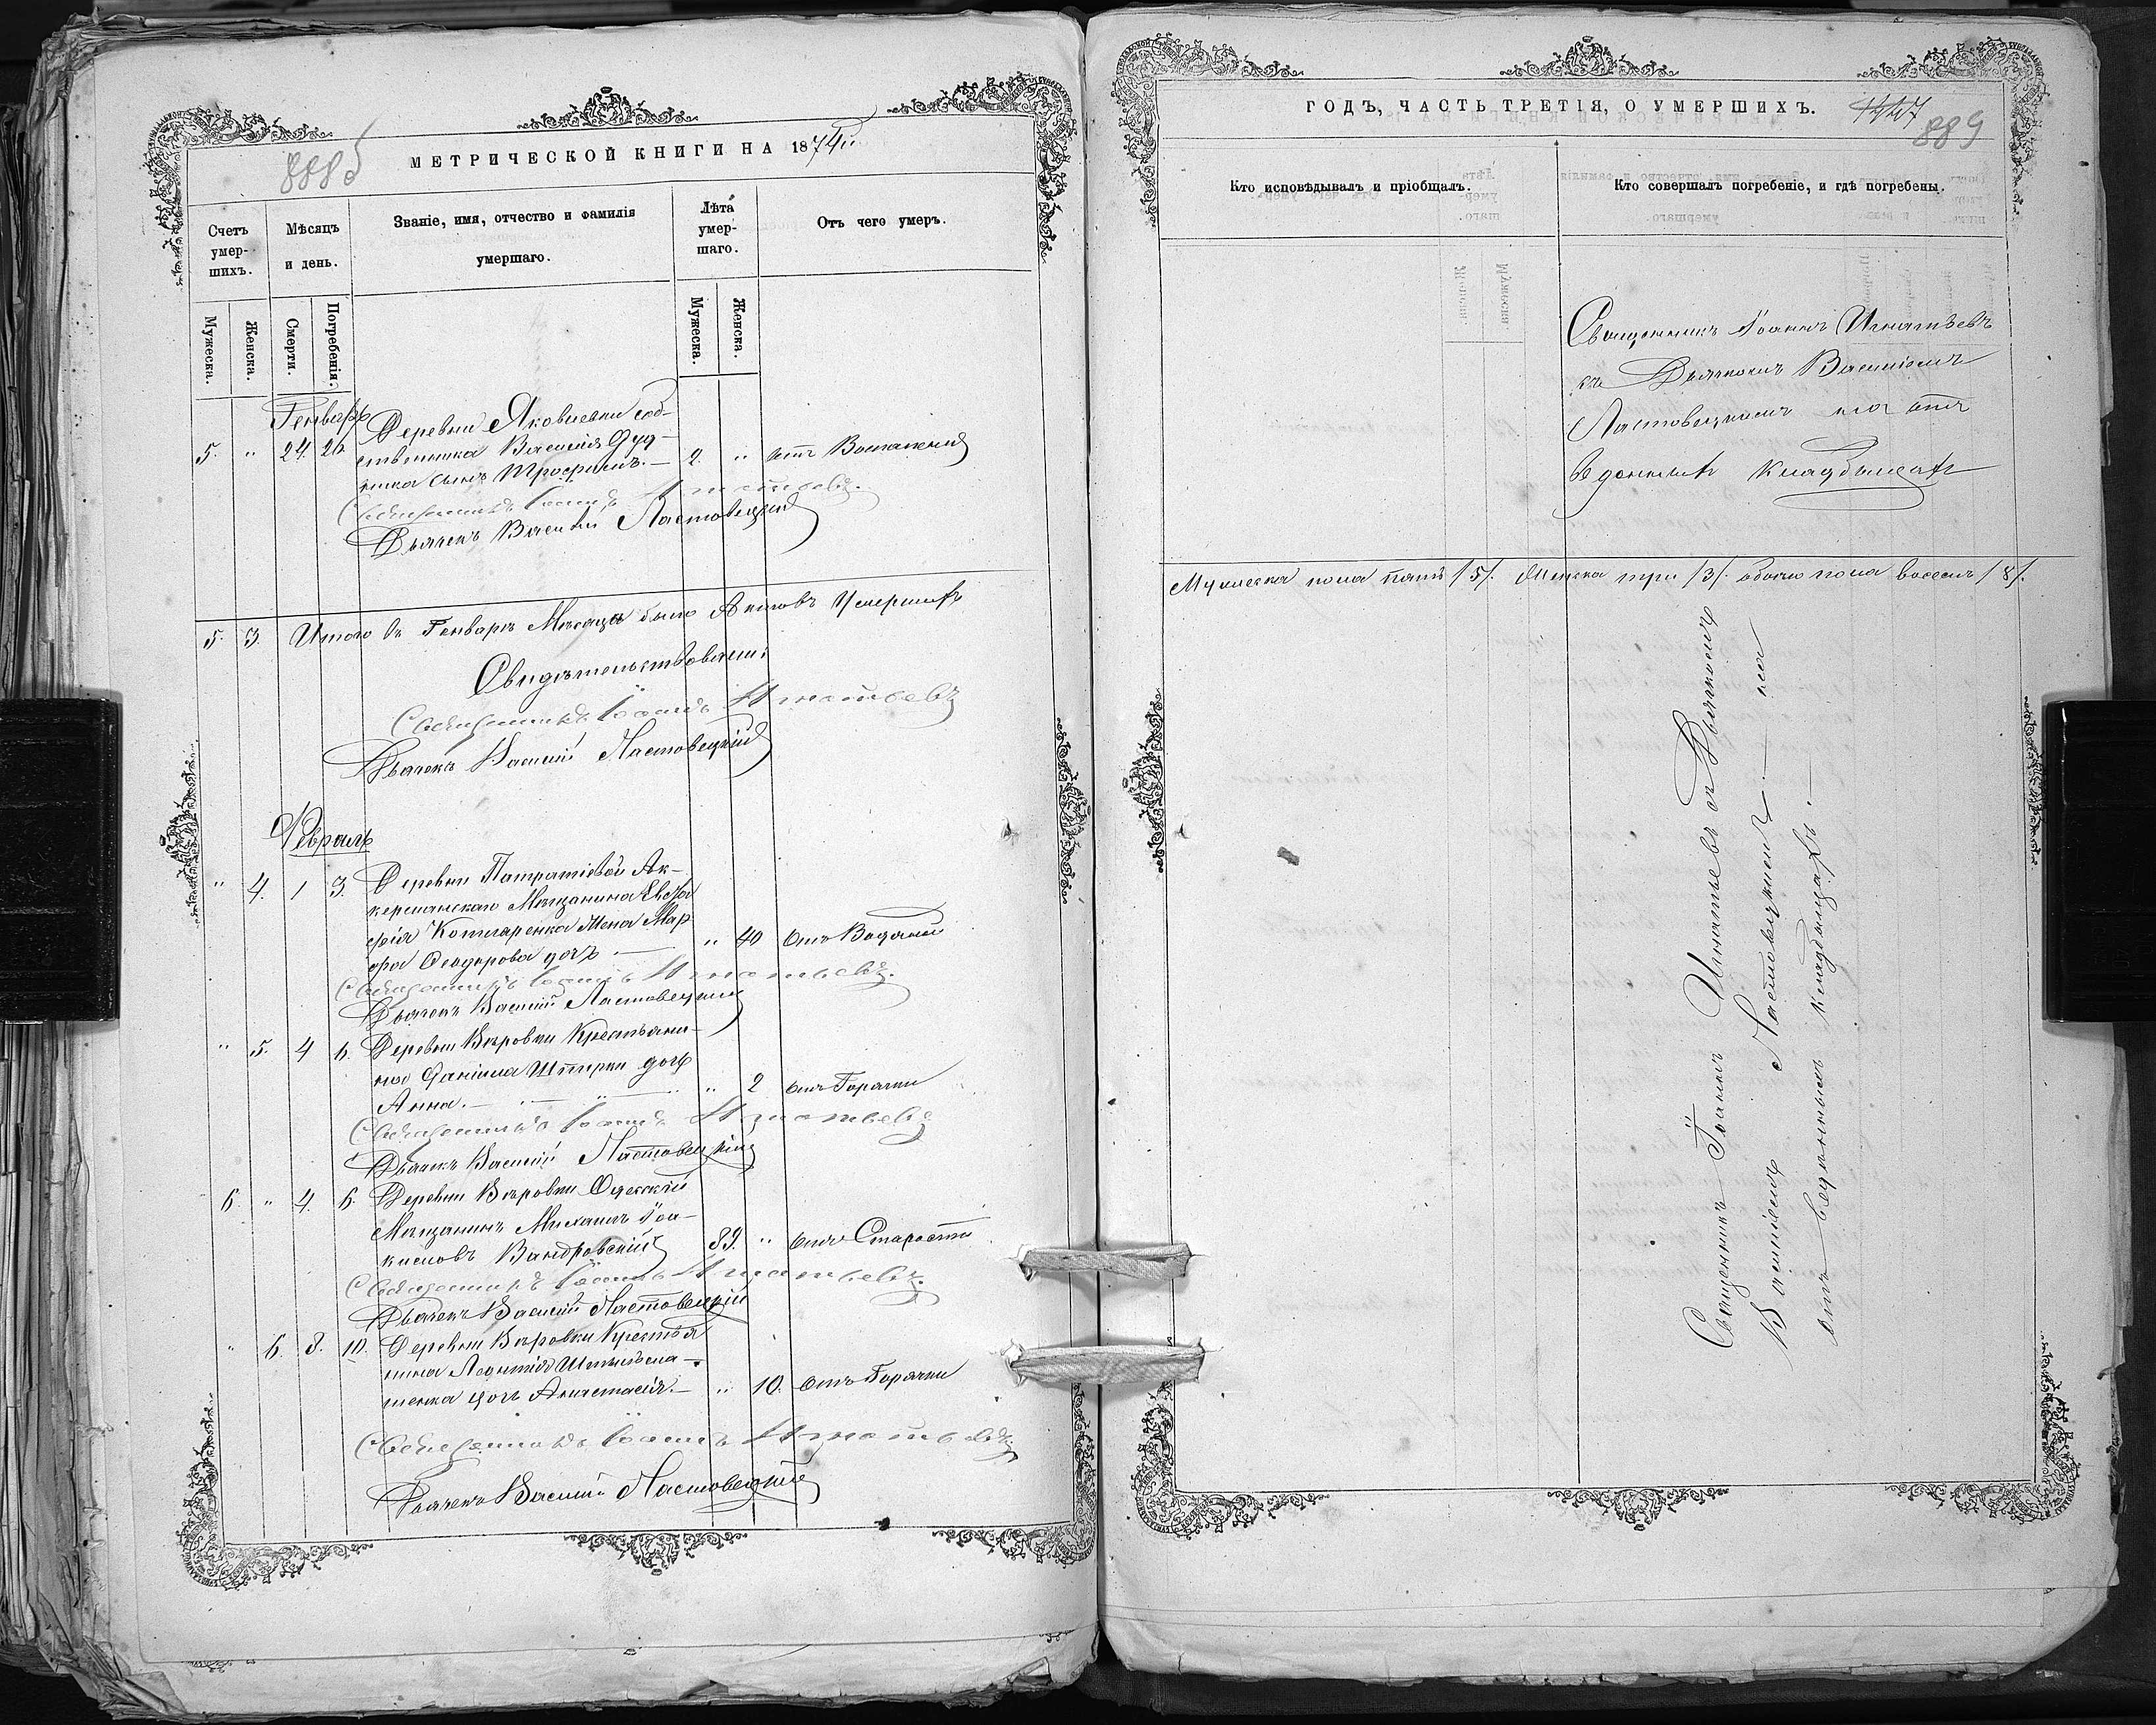 888б
МЕТРИЧЕСКОЙ КНИГИ НА 1874й
Счетъ умер-шихъ.
Мѣсяцъ и день.
Званіе, имя, отчество и фамилія умершаго.
Лѣта умер-шаго.
Отъ чего умеръ.
Мужеска. Женска. Смерти. Погребенія. Мужеска. Женска.
Генварь
Деревни Яковлевки соб-
5. " 24. 26 ственника Василія Дуд-
ника сынъ Трофимъ. — 2. " отъ
Священникъ Іоаннъ Игнатьевъ.
Дьячекъ Василій Ластовецкій
5. 3. Итого въ Генварѣ Мѣсяцѣ было Актовъ Умершихъ
Свидѣтельствовали:
Священникъ Іоаннъ Игнатьевъ
Дьячекъ Василій Ластовецкій
Февраль
" 4. 1 3. Деревни Ак-
керманскаго Мѣщанина
Жена Мар-
фа Ѳеодорова дочь — " 40 отъ Водянки
Священникъ Іоаннъ Игнатьевъ.
Дьячекъ Василій Ластовецкій
" 5. 4 6. Деревни Вѣровки Крестьяни-
на Даніила дочь
Анна. — " — " 2 отъ Горячки
Священникъ Іоаннъ Игнатьевъ
Дьячекъ Василій Ластовецкій
6. " 4. 6. Деревни Вѣровки Одесскій
Мѣщанинъ Михаилъ Іоа-
кимовъ Вандровскій 89. " отъ Старости
Священникъ Іоаннъ Игнатьевъ.
Дьячекъ Василій Ластовецкій
" 6. 8. 10. Деревни Вѣровки Крестья
нина Леонтія
дочь Анастасія. — " 10. отъ Горячки
Священникъ Іоаннъ Игнатьевъ
Дьячекъ Василій Ластовецкій
ГОДЪ, ЧАСТЬ ТРЕТІЯ, О УМЕРШИХЪ.
889
Кто исповѣдывалъ и пріобщалъ.
Кто совершалъ погребеніе, и гдѣ погребены.
Священникъ Іоаннъ Игнатьевъ
съ Дьячкомъ Василіемъ
Ластовецкимъ на отъ
веденномъ кладбищѣ
Мужеска пола пять /5/. Женска три /3/. обоего пола восемь /8/.
Священникъ Іоаннъ Игнатьевъ съ Дьячкомъ
Василіемъ Ластовецкимъ — на
отъ веденномъ кладбищѣ. —